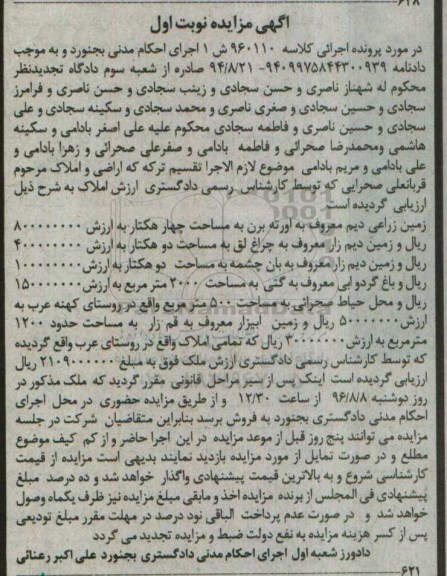 ۶۱۸
آگهی مزایده نوبت اول
در مورد پرونده اجرائی کلاسه ۹۶۰۱۱۰ ش ۱ اجرای احکام مدنی بجنورد و به موجب
دادنامه ۹۴۰۹۹۷۵۸۴۴۳۰۰۹۳۹- ۹۴/۸/۲۱ صادره از شعبه سوم دادگاه تجدیدنظر
محکوم له شهناز ناصری و حسن سجادی و زینب سجادی و حسن ناصری و فرامرز
سجادی و حسین سجادی و صغری ناصری و محمد سجادی و سکینه سجادی و علی
سجادی و حسین ناصری و فاطمه سجادی محکوم علیه علی اصغر بادامی و سکینه
هاشمی ومحمدرضا صحرائی و فاطمه بادامی و صفرعلی صحرائی و زهرا بادامی و
علی بادامی و مریم بادامی موضوع لازم الاجرا تقسیم ترکه که اراضی و املاک مرحوم
قربانعلی صحرایی که توسط کارشناس رسمی دادگستری ارزش املاک به شرح ذیل
ارزیابی گردیده است
زمین زراعی دیم معروف به آورته برن به مساحت چهار هکتار به ارزش ۸۰۰۰۰۰۰۰۰
ریال و زمین دیم زار معروف به چراغ لق به مساحت دو هکتار به ارزش ۴۰۰۰۰۰۰۰۰
ریال و زمین دیم زار معروف به بان چشمه به مساحت دو هکتار به ارزش ۱۰۰۰۰۰۰۰۰
ریال و باغ گردو ابی معروف به گنی به مساحت ۲۰۰۰ متر مربع به ارزش ۱۵۰۰۰۰۰۰۰
ریال و محل حیاط صحرائی به مساحت ۵۰۰ متر مربع واقع در روستای کهنه عرب به
ارزش ۵۰۰۰۰۰۰۰ ریال و زمین ابیزار معروف به قم زار به مساحت حدود ۱۲۰۰
مترمربع به ارزش ۳۰۰۰۰۰۰۰ ریال که تمامی املاک واقع در روستای عرب واقع گردیده
که توسط کارشناس رسمی دادگستری ارزش ملک فوق به مبلغ ۲۱۰۹۰۰۰۰۰۰ ریال
ارزیابی گردیده است اینک پس از سیر مراحل قانونی مقرر گردید که ملک مذکور در
روز دوشنبه ۹۶/۸/۸ از ساعت ۱۲/۳۰ و از طریق مزایده حضوری در محل اجرای
احکام مدنی دادگستری بجنورد به فروش برسد بنابراین متقاضیان شرکت در جلسه
مزایده می توانند پنج روز قبل از موعد مزایده در این اجرا حاضر و از کم کیف موضوع
مطلع و در صورت تمایل از مورد مزایده بازدید نمایند بدیهی است مزایده از قیمت
کارشناسی شروع و به بالاترین قیمت پیشنهادی واگذار خواهد شد و ده درصد مبلغ
پیشنهادی فی المجلس از برنده مزایده اخذ و مابقی مبلغ مزایده نیز ظرف یکماه وصول
خواهد شد و در صورت عدم پرداخت الباقی نود درصد در مهلت مقرر مبلغ تودیعی
پس از کسر هزینه مزایده به نفع دولت ضبط و مزایده تجدید می گردد
دادورز شعبه اول اجرای احکام مدنی دادگستری بجنورد علی اکبر رعنائی
۶۲۱